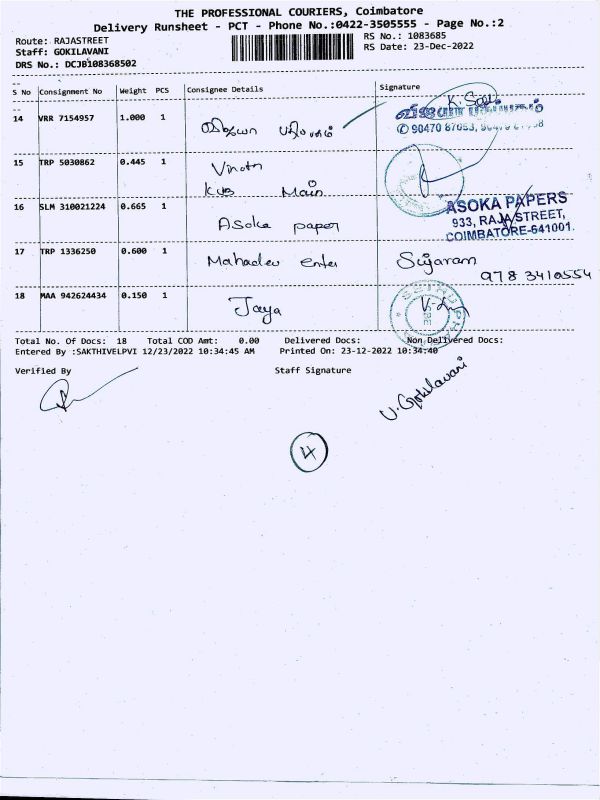 THE PROFESSIONAL COURIERS, Coimbatore
Delivery Runsheet - PCT - Phone No.:0422-3505555 - Page No.:2
Route: RAJASTREET
Staff: GOKILAVANI
DRS No.: DCJB108368502
RS No.: 1083685
RS Date: 23-Dec-2022
S No Consignment No Weight PCS Consignee Details Signature
14 VRR 7154957 1.000 1 விஜயா பதிப்பகம்
K.
விஜயா பதிப்பகம்
✆ 90470 87053,
15 TRP 5030862 0.445 1 Vinoth
KVB Main
16 SLM 310021224 0.665 1 Asoka paper
ASOKA PAPERS
933, RAJA STREET,
COIMBATORE-641001.
17 TRP 1336250 0.600 1 Mahadev enter Sujaram
978 3410554
18 MAA 942624434 0.150 1 Jaya
Total No. Of Docs: 18 Total COD Amt: 0.00 Delivered Docs: Non Delivered Docs:
Entered By :SAKTHIVELPVI 12/23/2022 10:34:45 AM Printed On: 23-12-2022 10:34:40
Verified By Staff Signature
V. Gokilavani
4